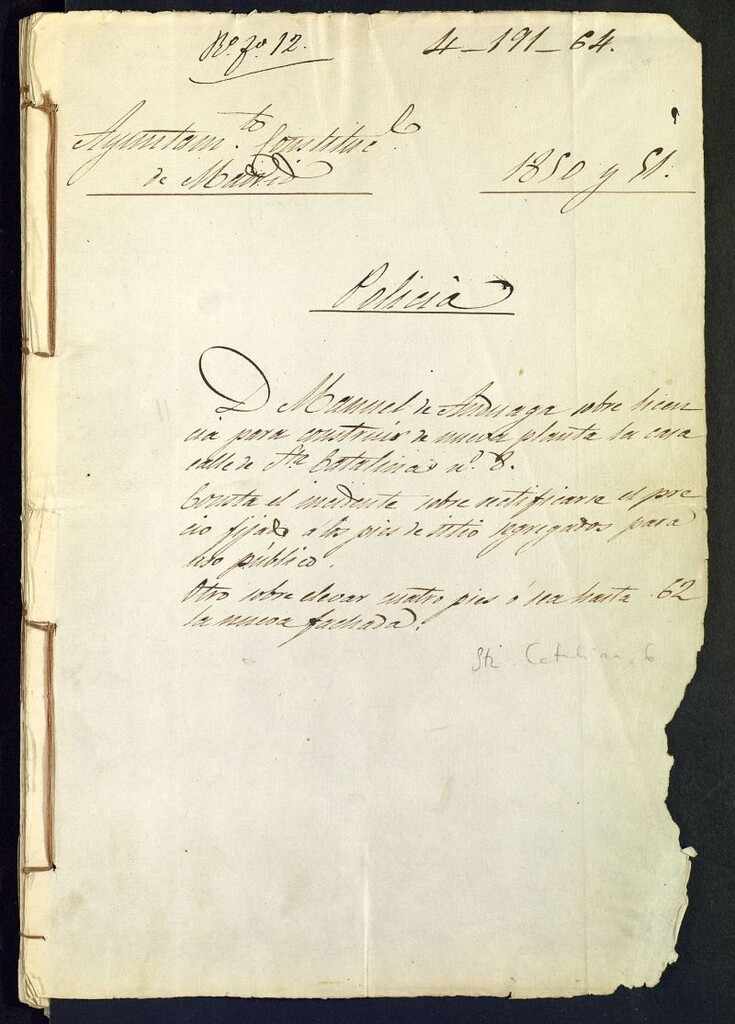 Rº fº 12.
4-191-64.
Ayuntam.to Constituc.l
de Madrid
1850 y 51.
Policia
D Manuel de Anduaga sobre licen
cia para construir de nueva planta la casa
calle de Sta Catalina nº. 8.
Consta el incidente sobre rectificarse el pre
cio fijado a los pies de sitio agregados para
uso público.
Otro sobre elevar cuatro pies ó sea hasta 62
la nueva fachada.
Sta. Catalina, 6